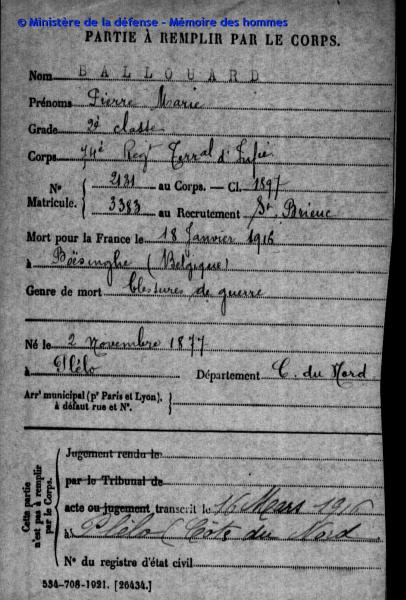 © Ministère de la défense - Mémoire des hommes
PARTIE À REMPLIR PAR LE CORPS.
Nom BALLOUARD
Prénoms Pierre Marie
Grade 2è classe
Corps 74è Regt Terral d'Infie
N° 2131 au Corps. — Cl. 1897
Matricule. 3383 au Recrutement St Brieuc
Mort pour la France le 18 Janvier 1916
à Boësinghe (Belgique)
Genre de mort blessures de guerre
Né le 2 Novembre 1877
à Plélo Département C. du Nord
Arrt municipal (pr Paris et Lyon), à défaut rue et N°.
Cette partie n'est pas à remplir par le Corps.
Jugement rendu le
par le Tribunal de
acte ou jugement transcrit le 16 Mars 1916
à Plélo (Côtes du Nord
N° du registre d'état civil
534-708-1921. [26434.]